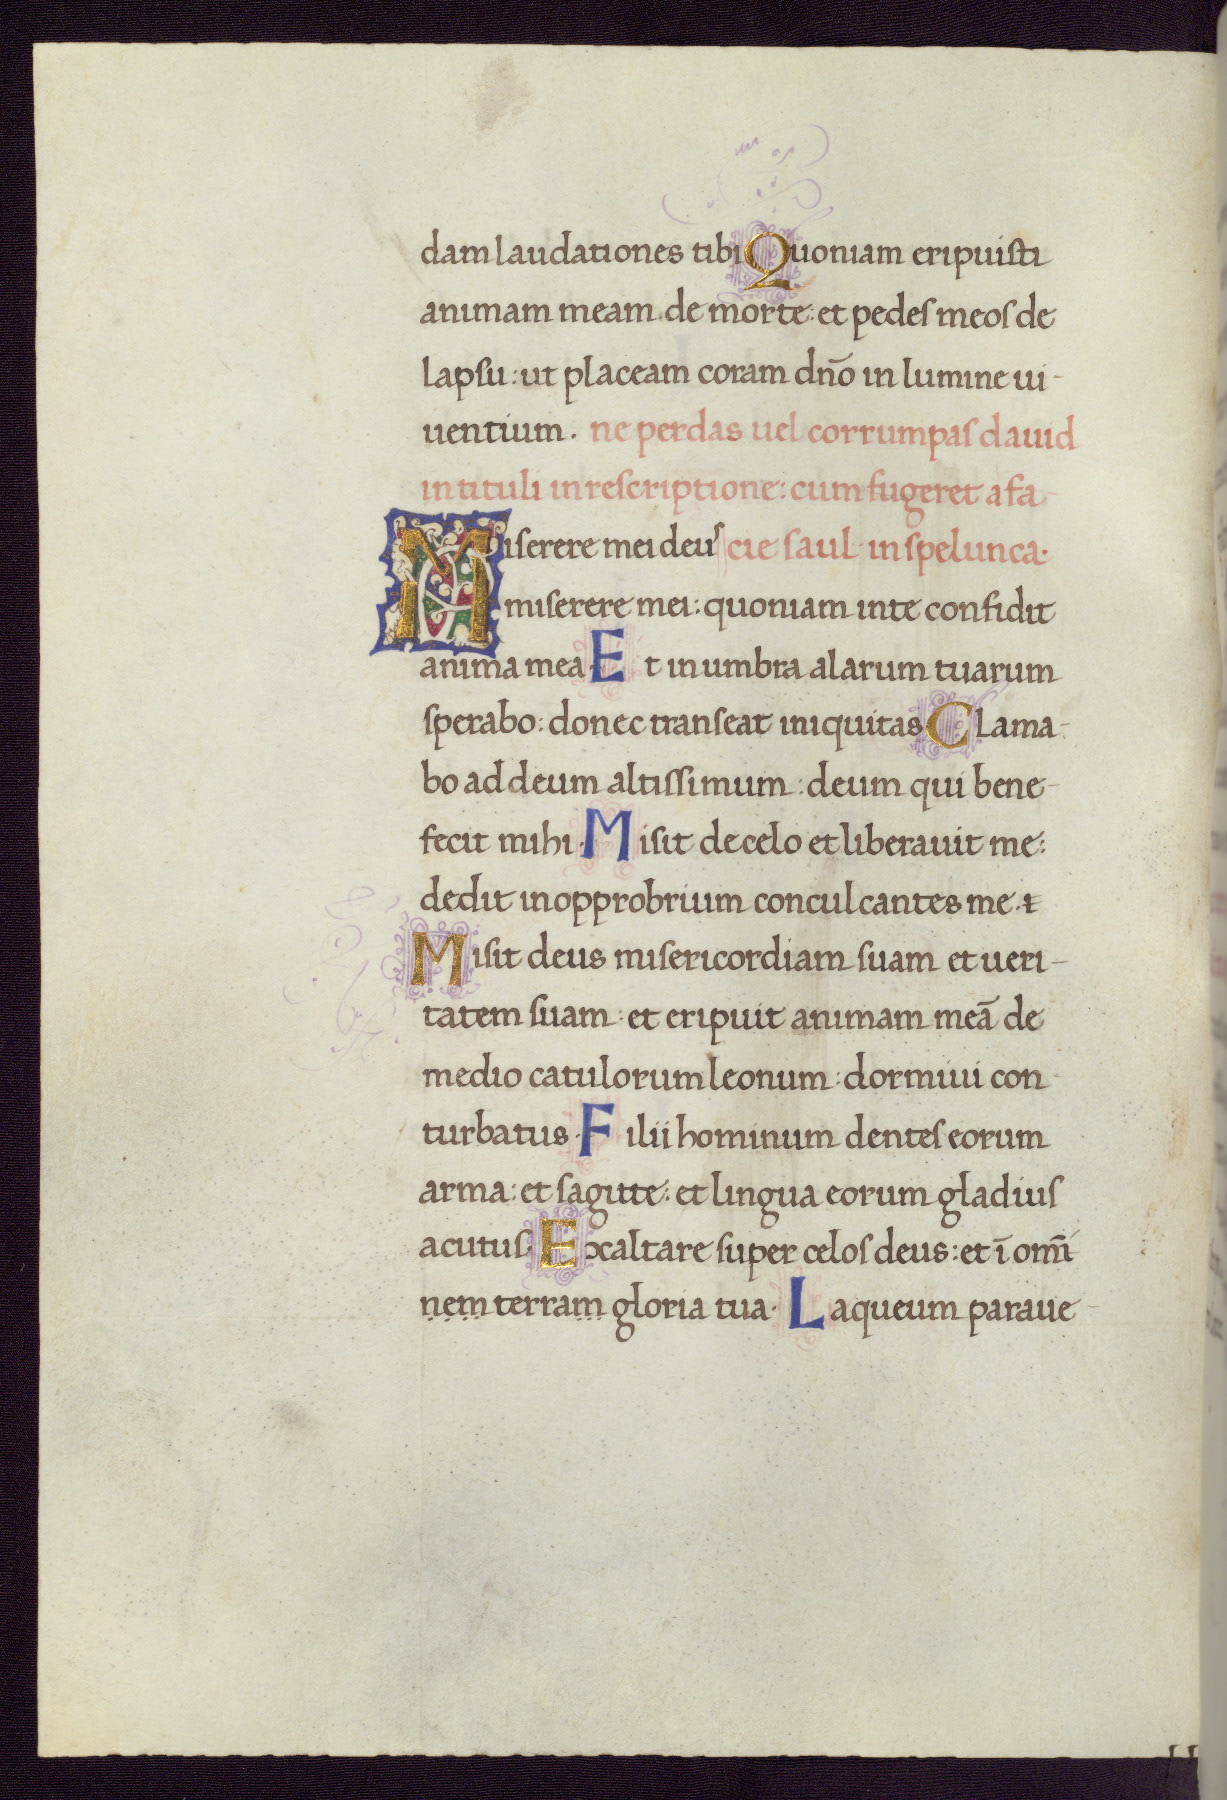 dam laudationes tibi Quoniam eripuisti
animam meam de morte: et pedes meos de
lapsu: ut placeam coram dño in lumine ui-
uentium. ne perdas uel corrumpas dauid
in tituli inrescriptione: cum fugeret a fa-
Miserere mei deus cie saul in spelunca.
miserere mei: quoniam in te confidit
anima mea. Et in umbra alarum tuarum
sperabo: donec transeat iniquitas Clama-
bo ad deum altissimum: deum qui bene-
fecit mihi. Misit de celo et liberauit me:
dedit in opprobrium conculcantes me.
Misit deus misericordiam suam et ueri-
tatem suam: et eripuit animam meā de
medio catulorum leonum: dormiui con-
turbatus. Filii hominum dentes eorum
arma: et sagitte: et lingua eorum gladius
acutus. Exaltare super celos deus: et ī om̄i
nem terram gloria tua. Laqueum paraue-